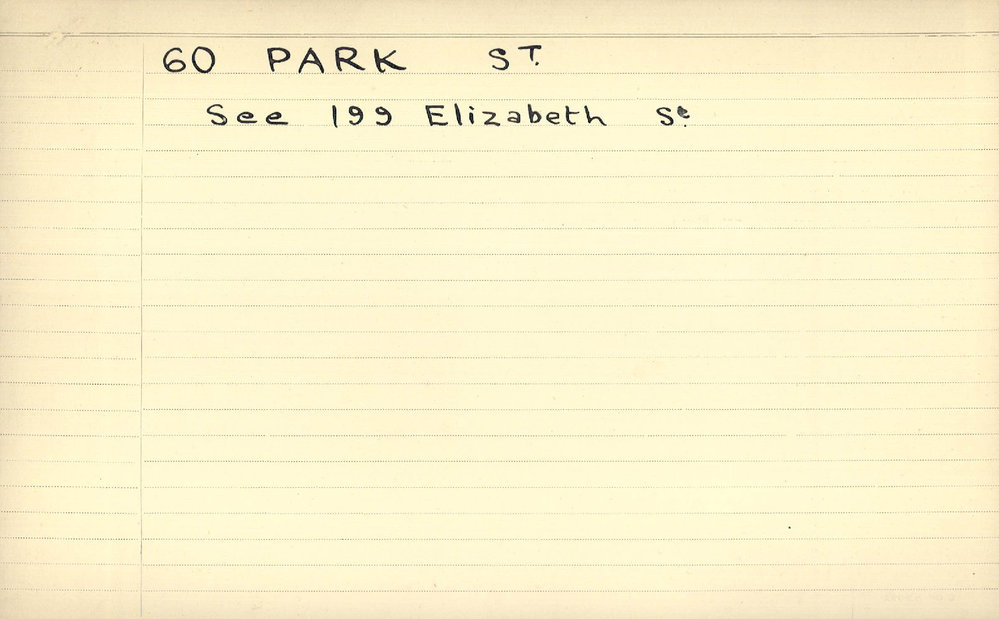 60 PARK ST.
See 199 Elizabeth St.